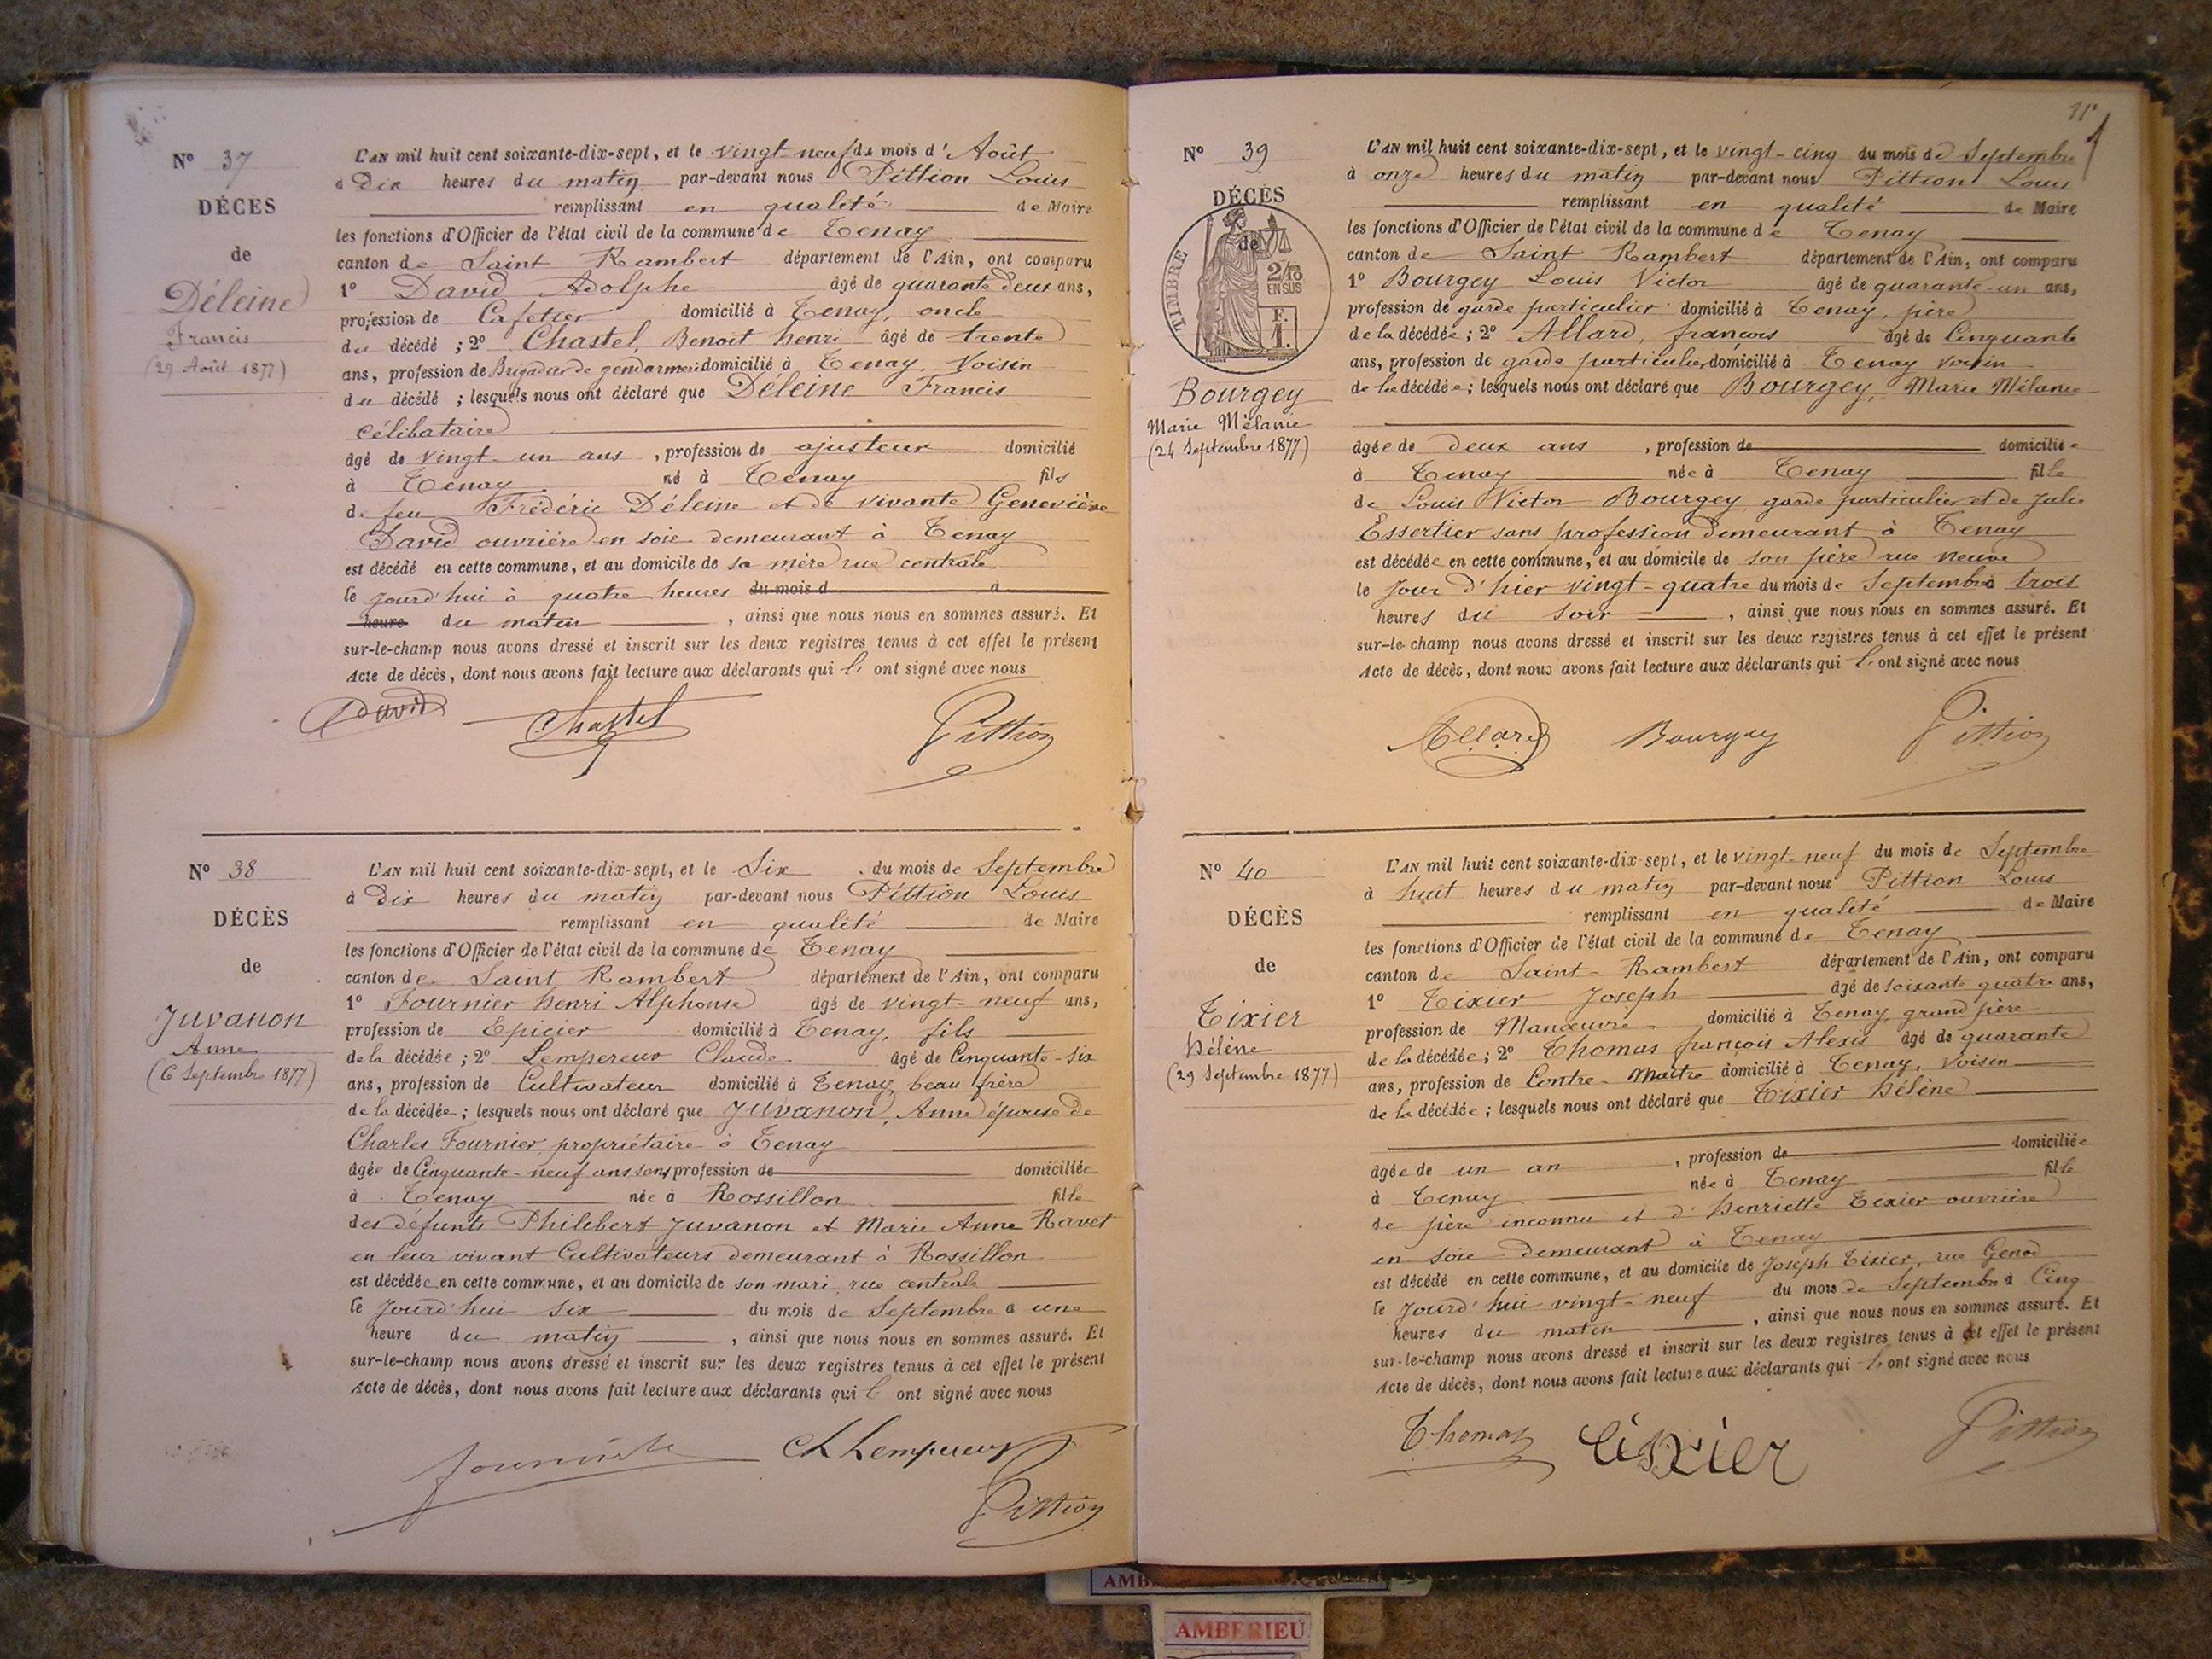 N° 37
DÉCÈS
de
Déleine
Francis
(29 Août 1877)
L'AN mil huit cent soixante-dix-sept, et le vingt-neuf du mois d'Août
à Dix heures du matin par-devant nous Pittion Louis
remplissant en qualité de Maire
les fonctions d'Officier de l'état civil de la commune de Tenay
canton de Saint Rambert département de l'Ain, ont comparu
1° David Adolphe âgé de quarante deux ans,
profession de Cafetier domicilié à Tenay, oncle
du décédé ; 2° Chastel, Benoit henri âgé de trente
ans, profession de Brigadier de gendarmerie domicilié à Tenay, Voisin
du décédé ; lesquels nous ont déclaré que Déleine Francis
célibataire
âgé de vingt-un ans, profession de ajusteur domicilié
à Tenay né à Tenay fils
de feu Frédéric Déleine et de vivante Geneviève
David ouvrière en soie demeurant à Tenay
est décédé en cette commune, et au domicile de sa mère rue centrale
le jourd'hui à quatre heures du mois d à
heure du matin, ainsi que nous nous en sommes assuré. Et
sur-le-champ nous avons dressé et inscrit sur les deux registres tenus à cet effet le présent
Acte de décès, dont nous avons fait lecture aux déclarants qui l'ont signé avec nous
David Chastel Pittion
N° 38
DÉCÈS
de
Juvanon
Anne
(6 Septembre 1877)
L'AN mil huit cent soixante-dix-sept, et le Six du mois de Septembre
à Dix heures du matin par-devant nous Pittion Louis
remplissant en qualité de Maire
les fonctions d'Officier de l'état civil de la commune de Tenay
canton de Saint Rambert département de l'Ain, ont comparu
1° Fournier henri Alphonse âgé de vingt-neuf ans,
profession de Epicier domicilié à Tenay, fils
de la décédée ; 2° Lempereur Claude âgé de Cinquante-six
ans, profession de Cultivateur domicilié à Tenay, beau frère
de la décédée ; lesquels nous ont déclaré que Juvanon, Anne épouse de
Charles Fournier, propriétaire à Tenay
âgée de Cinquante-neuf ans sans profession de domiciliée
à Tenay née à Rossillon fille
des défunts Philibert Juvanon et Marie Anne Ravet
en leur vivant Cultivateurs demeurant à Rossillon
est décédée en cette commune, et au domicile de son mari, rue centrale
le jourd'hui six du mois de Septembre à une
heure du matin, ainsi que nous nous en sommes assuré. Et
sur-le-champ nous avons dressé et inscrit sur les deux registres tenus à cet effet le présent
Acte de décès, dont nous avons fait lecture aux déclarants qui l'ont signé avec nous
Pittion
11e
N° 39
DÉCÈS
de
TIMBRE
2/10
EN SUS
F.
1.
Bourgey
Marie Mélanie
(24 Septembre 1877)
L'AN mil huit cent soixante-dix-sept, et le vingt-cinq du mois de Septembre
à onze heures du matin par-devant nous Pittion Louis
remplissant en qualité de Maire
les fonctions d'Officier de l'état civil de la commune de Tenay
canton de Saint Rambert département de l'Ain, ont comparu
1° Bourgey Louis Victor âgé de quarante-un ans,
profession de garde particulier domicilié à Tenay, père
de la décédée ; 2° Allard, françois âgé de Cinquante
ans, profession de garde particulier domicilié à Tenay voisin
de la décédée ; lesquels nous ont déclaré que Bourgey, Marie Mélanie
âgée de deux ans, profession de domiciliée
à Tenay née à Tenay fille
de Louis Victor Bourgey garde particulier et de Julie
Essertier sans profession demeurant à Tenay
est décédée en cette commune, et au domicile de son père rue neuve
le jour d'hier vingt-quatre du mois de Septembre à trois
heures du soir, ainsi que nous nous en sommes assuré. Et
sur-le-champ nous avons dressé et inscrit sur les deux registres tenus à cet effet le présent
Acte de décès, dont nous avons fait lecture aux déclarants qui l'ont signé avec nous
Allard Bourgey Pittion
N° 40
DÉCÈS
de
Tixier
hélène
(29 Septembre 1877)
L'AN mil huit cent soixante-dix-sept, et le vingt-neuf du mois de Septembre
à huit heures du matin par-devant nous Pittion Louis
remplissant en qualité de Maire
les fonctions d'Officier de l'état civil de la commune de Tenay
canton de Saint-Rambert département de l'Ain, ont comparu
1° Tixier Joseph âgé de soixante quatre ans,
profession de Manœuvre domicilié à Tenay, grand père
de la décédée ; 2° Thomas françois Alexis âgé de quarante
ans, profession de Contre-Maître domicilié à Tenay, Voisin
de la décédée ; lesquels nous ont déclaré que Tixier hélène
âgée de un an, profession de domiciliée
à Tenay née à Tenay fille
de père inconnu et d'henriette Texier ouvrière
en soie demeurant à Tenay
est décédé en cette commune, et au domicile de Joseph Tixier, rue Genod
le jourd'hui vingt-neuf du mois de Septembre à Cinq
heures du matin, ainsi que nous nous en sommes assuré. Et
sur-le-champ nous avons dressé et inscrit sur les deux registres tenus à cet effet le présent
Acte de décès, dont nous avons fait lecture aux déclarants qui l'ont signé avec nous
Thomas Tixier Pittion
AMBERIEU